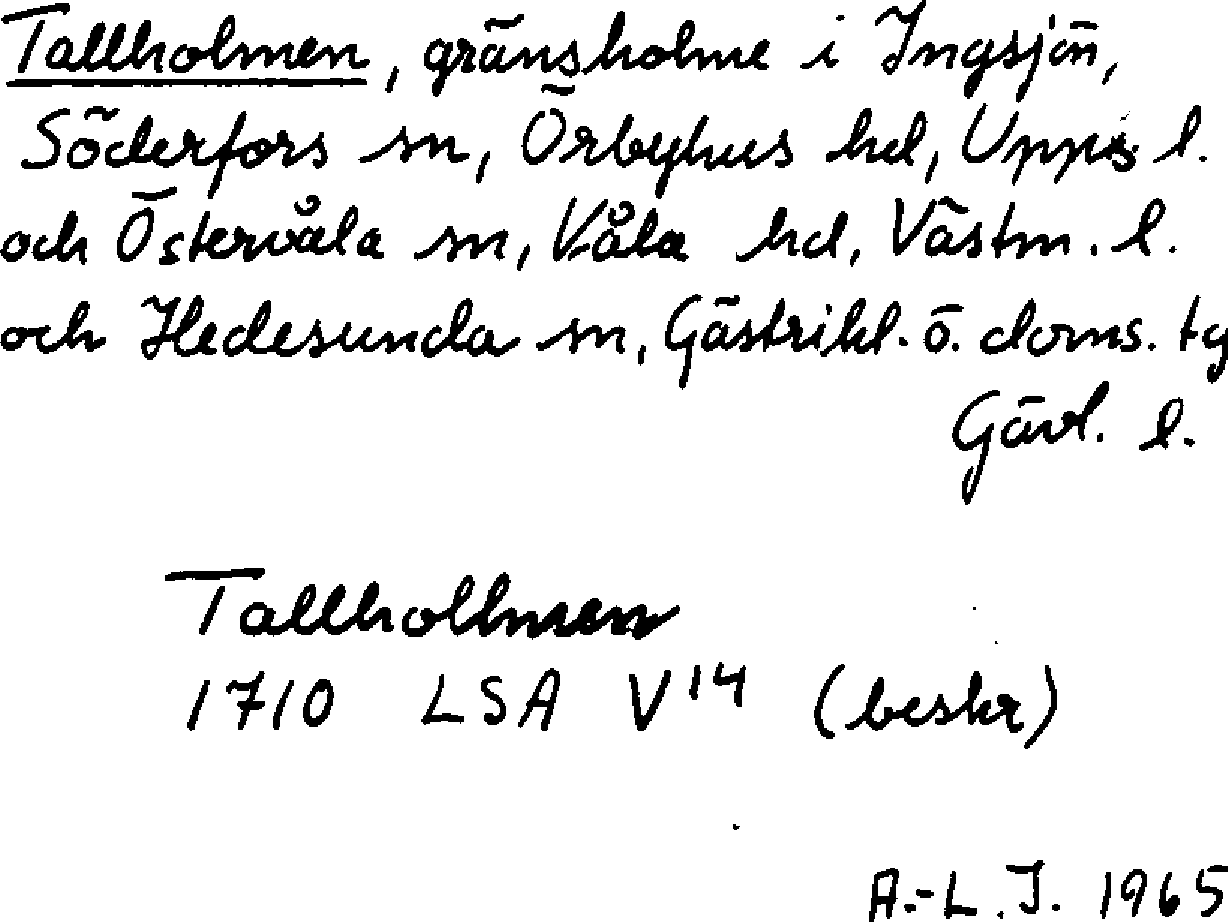 Tallholmen, gränsholme i Ingsjön,
Söderfors sn, Örbyhus hd, Upps l.
och Östervåla sn, Våla hd, Västm. l.
och Hedesunda sn, Gästrikl. ö. doms. tg
Gävl. l.
Tallhollmen
1710 LSA V14 (beskr)
A.-L. J. 1965